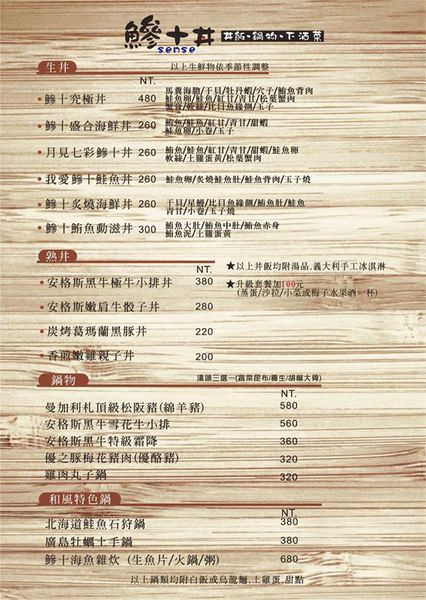 鰺十丼 丼飯·鍋物·下酒菜
sense
生丼 以上生鮮物依季節性調整
NT.
·鰺十究極丼 480 馬糞海膽/干貝/牡丹蝦/穴子/鮪魚背肉
鮭魚卵/鮭魚/紅甘/青甘/松葉蟹肉
蟹膏/軟絲/比目魚緣側/玉子
·鰺十盛合海鮮丼 260 鮪魚/鮭魚/紅甘/青甘/甜蝦
鮭魚卵/小卷/玉子
·月見七彩鰺十丼 260 鮪魚/鮭魚/紅甘/青甘/甜蝦/鮭魚卵
軟絲/土雞蛋黃/松葉蟹肉
·我愛鰺十鮭魚丼 260 鮭魚卵/炙燒鮭魚肚/鮭魚背肉/玉子燒
·鰺十炙燒海鮮丼 260 干貝/星鰻/比目魚緣側/鮪魚肚/鮭魚
青甘/小卷/玉子燒
·鰺十鮪魚動滋丼 300 鮪魚大肚/鮪魚中肚/鮪魚赤身
鮪魚泥/土雞蛋黃
熟丼
NT. ★以上丼飯均附湯品,義大利手工冰淇淋
·安格斯黑牛極牛小排丼 380 ★升級套餐加100元
(蒸蛋/沙拉/小菜或梅子水果酒一杯)
·安格斯嫩肩牛骰子丼 280
·炭烤葛瑪蘭黑豚丼 220
·香煎嫩雞親子丼 200
鍋物 湯頭三選一(蔬菜昆布/養生/胡椒大骨)
NT.
曼加利札頂級松阪豬(綿羊豬) 580
安格斯黑牛雪花牛小排 560
安格斯黑牛特級霜降 360
優之豚梅花豬肉(優酪豬) 320
雞肉丸子鍋 320
和風特色鍋
NT.
北海道鮭魚石狩鍋 380
廣島牡蠣土手鍋 380
鰺十海魚雜炊 (生魚片/火鍋/粥) 680
以上鍋類均附白飯或烏龍麵,土雞蛋,甜點